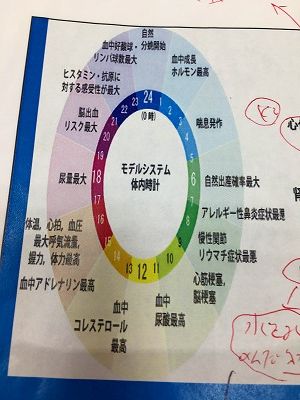 自然
血中好酸球・分娩開始
リンパ球数最大
血中成長
ホルモン最高
ヒスタミン・抗原に
対する感受性が最大
喘息発作
脳出血
リスク最大
24
(0時)
1
2
3
4
5
6
7
8
9
10
11
12
13
14
15
16
17
18
19
20
21
22
23
モデルシステム
体内時計
尿量最大
自然出産確率最大
アレルギー性鼻炎症状最悪
体温, 心拍, 血圧
最大呼気流量,
握力, 体力最高
慢性関節
リウマチ症状最悪
心筋梗塞,
脳梗塞
血中アドレナリン最高
血中
コレステロール
最高
血中
尿酸最高